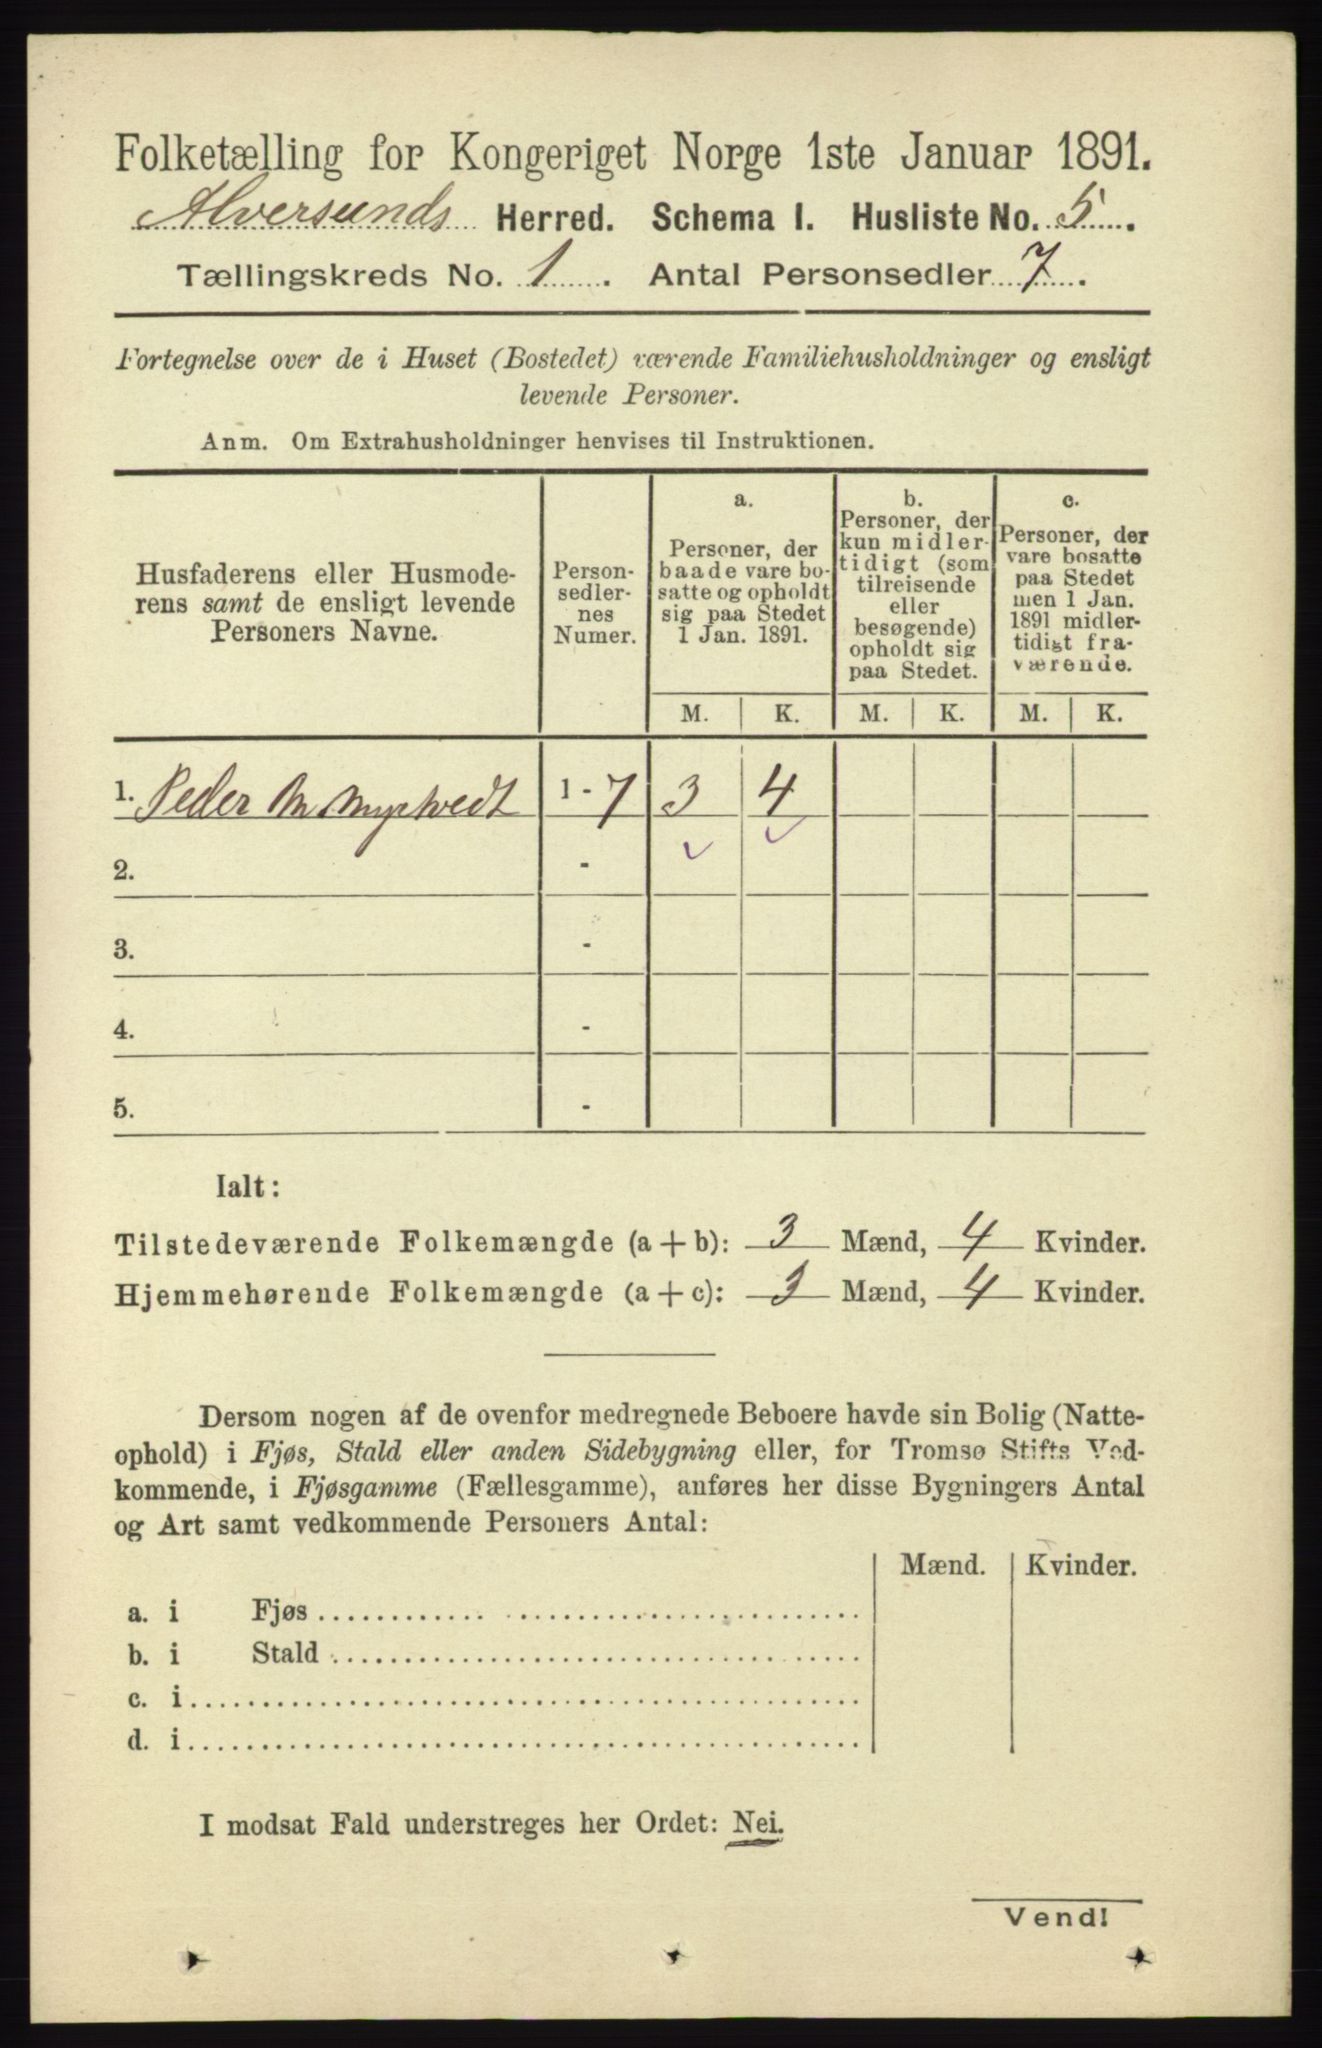 Folketælling for Kongeriget Norge 1ste Januar 1891.
Alversunds Herred. Schema I. Husliste No. 5.
Tællingskreds No. 1. Antal Personsedler 7.
Fortegnelse over de i Huset (Bostedet) værende Familiehusholdninger og ensligt
levende Personer.
Anm. Om Extrahusholdninger henvises til Instruktionen.
Husfaderens eller Husmode-
rens samt de ensligt levende
Personers Navne.
Person-
sedler-
nes
Numer.
a.
Personer, der
baade vare bo-
satte og opholdt
sig paa Stedet
1 Jan. 1891.
b.
Personer, der
kun midler-
tidigt (som
tilreisende
eller
besøgende)
opholdt sig
paa Stedet.
c.
Personer, der
vare bosatte
paa Stedet
men 1 Jan.
1891 midler-
tidigt fra-
værende.
M. K. M. K. M. K.
1. Peder M. Myrtvedt 1 - 7 3 4
2. -
3. -
4. -
5. -
Ialt:
Tilstedeværende Folkemængde (a + b): 3 Mænd, 4 Kvinder.
Hjemmehørende Folkemængde (a + c): 3 Mænd, 4 Kvinder.
Dersom nogen af de ovenfor medregnede Beboere havde sin Bolig (Natte-
ophold) i Fjøs, Stald eller anden Sidebygning eller, for Tromsø Stifts Ved-
kommende, i Fjøsgamme (Fællesgamme), anføres her disse Bygningers Antal
og Art samt vedkommende Personers Antal:
Mænd. Kvinder.
a. i Fjøs
b. i Stald
c. i
d. i
I modsat Fald understreges her Ordet: Nei.
Vend!